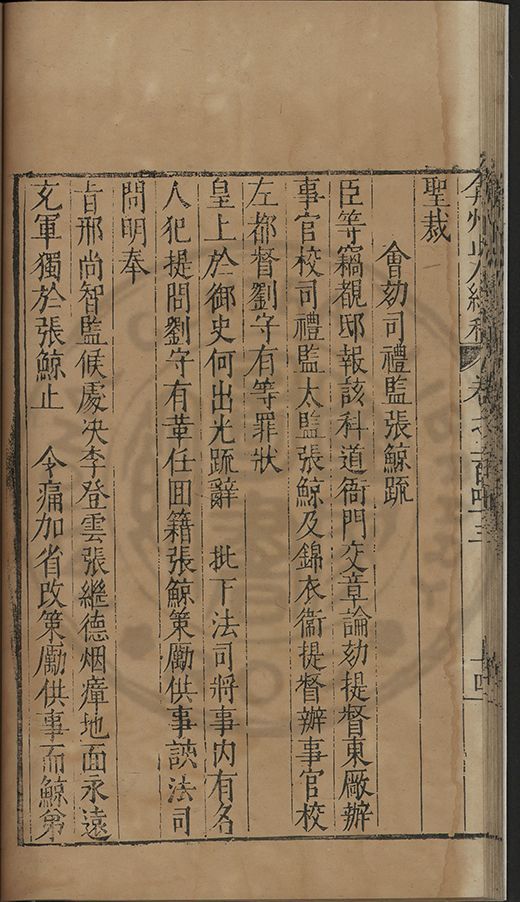 弇州山人續稿 卷之一百四十三 十四
聖裁
會劾司禮監張鯨疏
臣等竊覩邸報該科道衙門交章論劾提督東廠辦
事官校司禮監太監張鯨及錦衣衞提督辦事官校
左都督劉守有等罪狀
皇上於御史何出光疏辭 批下法司將事內有名
人犯提問劉守有革任囬籍張鯨策勵供事該法司
問明奉
旨邢尚智監候處决李登雲張繼德烟瘴地面永遠
充軍獨於張鯨止 令痛加省改策勵供事而鯨第